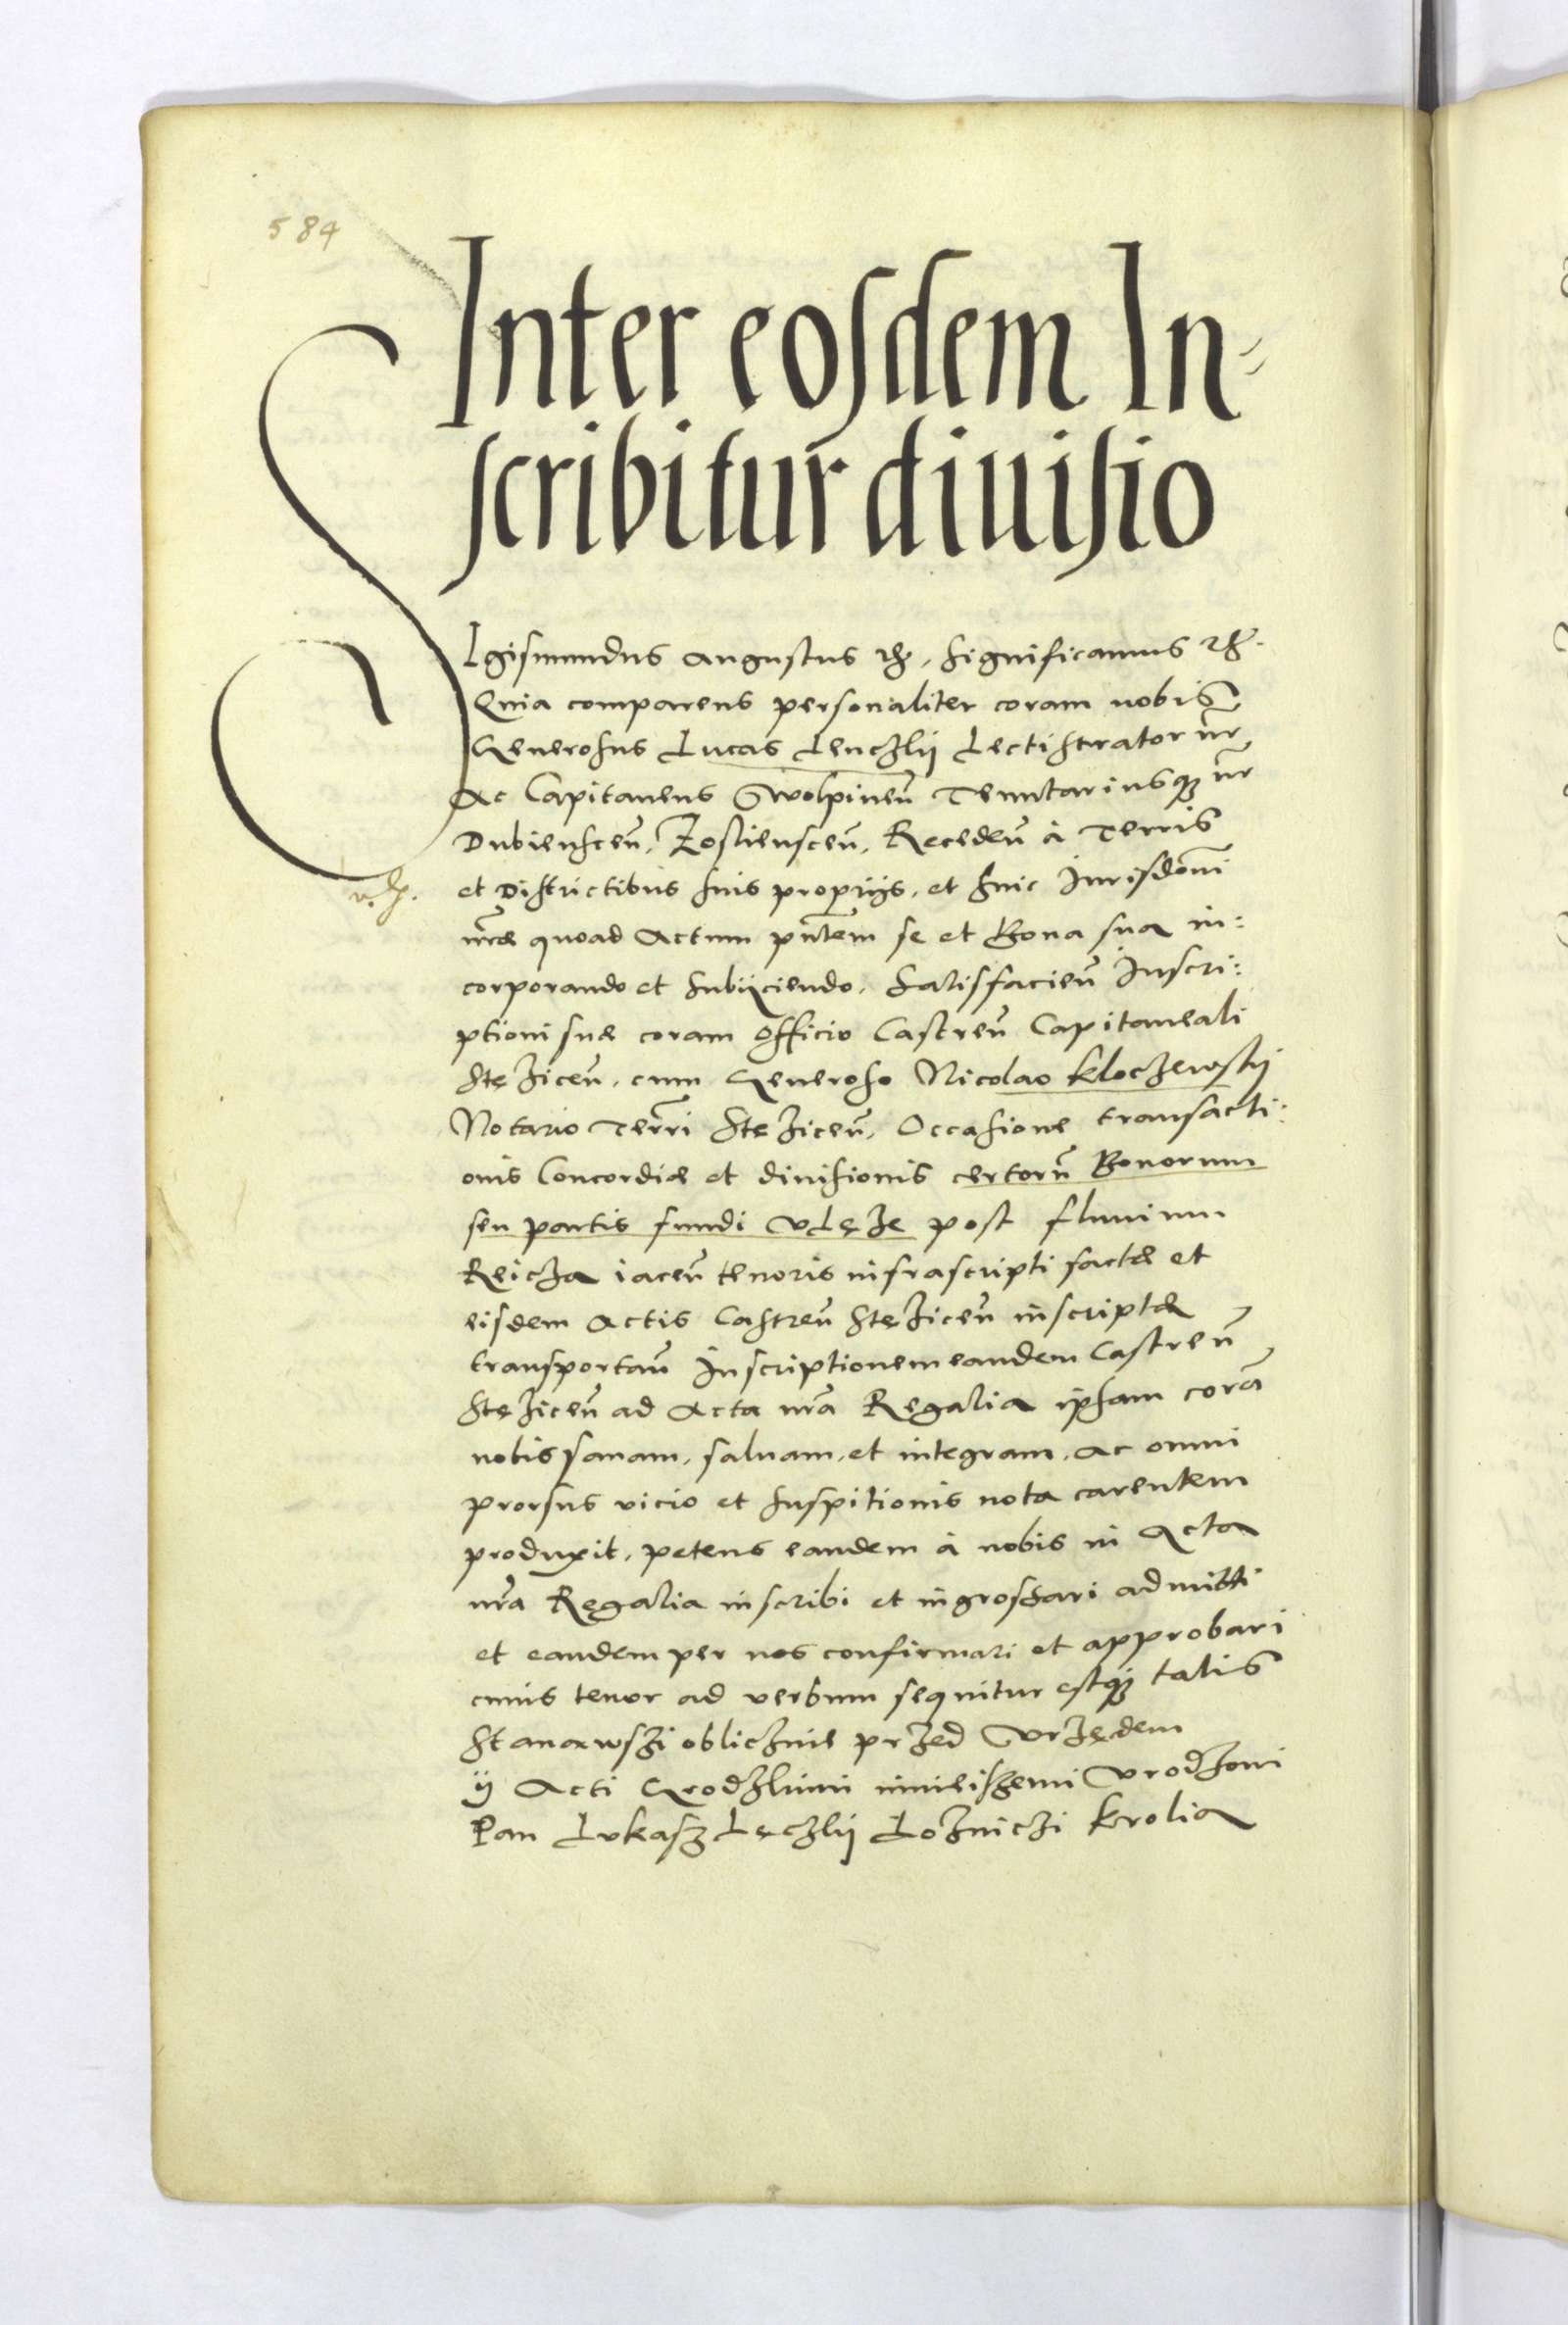 584
Inter eosdem In-
scribitur diuisio
SIgismundus Augustus etc. Significamus etc.
Quia comparens personaliter coram nobis
Generosus Lucas Lenczlij Lectistrator nr̃
Ac Capitaneus Wolpineñ Tenutariusq3 nr̃
Dubiensceñ, Zosliensceñ, Recedeñ à Terris
et Districtibus suis proprijs, et huic Jurisdõni
nr̃ae quoad Actum pñtem se et Bona sua in:
corporando et subijciendo, satisfacieñ Inscri:
ptioni suae coram Officio Castreñ Capitaneali
Stęziceñ, cum Generoso Nicolao Kloczewskij
Notario Terr̃i Stęziceñ, Occasione transacti:
onis Concordiae et diuisionis certorũ Bonorum
seu partis fundi vlęze post fluuium
Reicza iaceñ tenoris infrascripti factae et
eisdem Actis Castreñ Stęziceñ inscriptae
transportañ Inscriptionem eandem Castreñ
Stęziceñ ad Acta nr̃a Regalia ipsam corã
nobis sanam, saluam, et integram, ac omni
prorsus vicio et suspitionis nota carentem
produxit, petens eandem à nobis in Acta
nr̃a Regalia inscribi et ingrossari admitti
et eandem per nos confirmari et approbari
cuius tenor ad verbum sequitur estq3 talis
Stanowszi oblicznie przed Vrzędem
ij Acti Grodzkimi ninieiszemi Vrodzoni
Pan Lvkasz Lęczlij Lozniczi Krolia